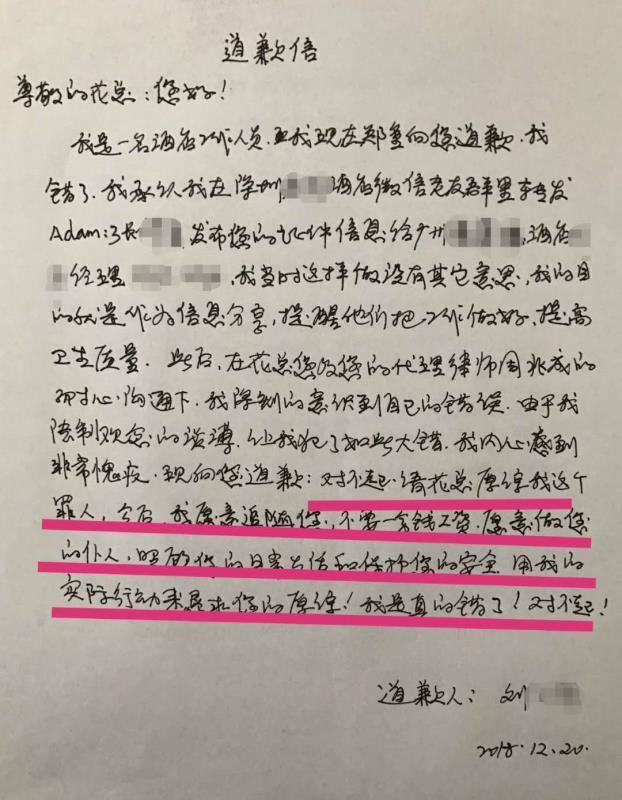 道歉信
尊敬的花总：您好！
我是一名酒店工作人员，我现在郑重向您道歉，我
错了，我承认我在深圳 酒店微信老友群里转发
Adam：310 发布您的证件信息给广州 酒店
经理 ，我当时这样做没有其它意思，我的目
的就是作为信息分享，提醒他们把工作做好，提高
卫生质量。此后，在花总您及您的代理律师周兆成的
耐心沟通下，我深刻的意识到自己的错误，由于我
法制观念的淡薄，让我犯了如此大错，我内心感到
非常愧疚，现向您道歉：对不起，请花总原谅我这个
罪人，今后，我愿意追随您，不要一分钱工资，愿意做您
的仆人，照顾您的日常生活和保护您的安全，用我的
实际行动来恳求您的原谅！我是真的错了！对不起！
道歉人：刘
2018.12.20.